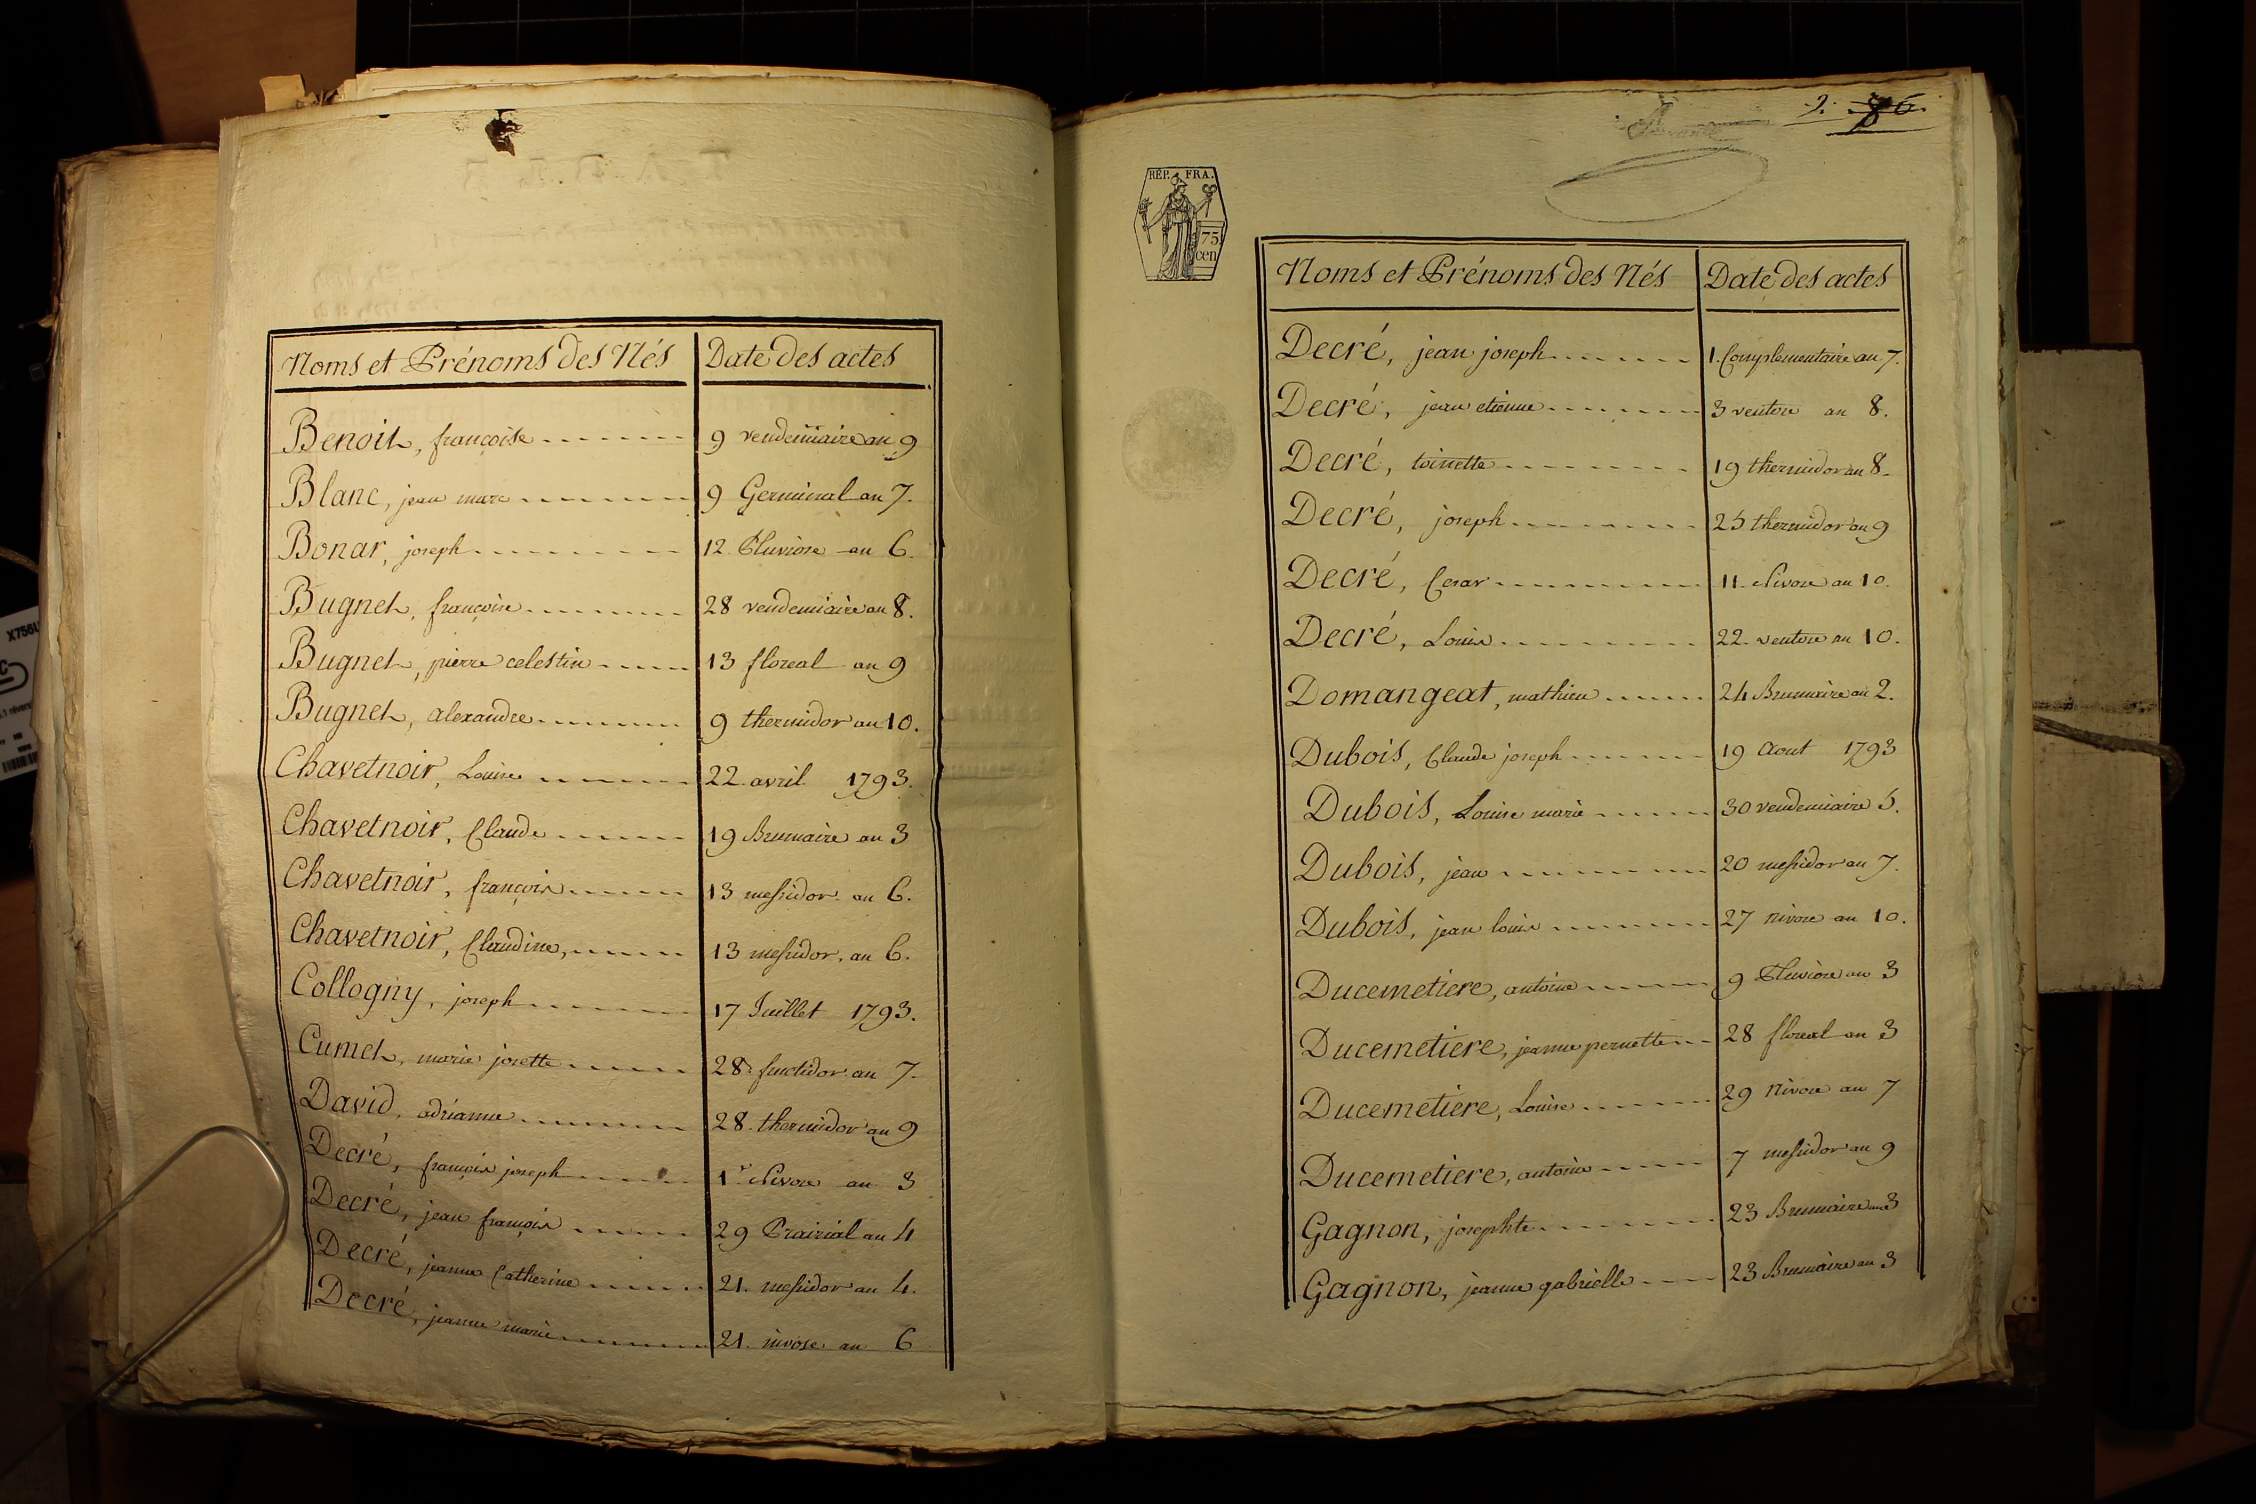 Noms et Prénoms des Nés | Date des actes
Benoit, françoise | 9 vendemiaire an 9
Blanc, jean marc | 9 Germinal an 7.
Bonar, joseph | 12 Pluviose an 6.
Bugnet, françoise | 28 vendemiaire an 8.
Bugnet, pierre celestin | 13 floreal an 9
Bugnet, alexandre | 9 thermidor an 10.
Chavetnoir, Louise | 22 avril 1793.
Chavetnoir, Claude | 19 Brumaire an 3
Chavetnoir, françois | 13 messidor an 6.
Chavetnoir, Claudine, | 13 messidor, an 6.
Collogny, joseph | 17 Juillet 1793.
Cumet, marie josette | 28 fructidor an 7.
David, adrianne | 28. thermidor an 9
Decré, françois joseph | 1r Nivose an 3
Decré, jean françois | 29 Prairial an 4
Decré, jeanne Catherine | 21. messidor an 4.
Decré, jeanne marie | 21. nivose an 6
2.
RÉP. FRA.
75
cen
Noms et Prénoms des Nés | Date des actes
Decré, jean joseph | 1. Complementaire an 7.
Decré, jean etienne | 3 ventose an 8.
Decré, toinette | 19 thermidor an 8.
Decré, joseph | 25 thermidor an 9
Decré, Cesar | 11. Nivose an 10.
Decré, Louis | 22. ventose an 10.
Domangeat, mathieu | 24 Brumaire an 2.
Dubois, Claude joseph | 19 Aout 1793
Dubois, Louise marie | 30 vendemiaire 5.
Dubois, jean | 20 messidor an 7.
Dubois, jean louis | 27 nivose an 10.
Ducemetiere, antoine | 9 Pluviose an 3
Ducemetiere, jeanne pernette | 28 floreal an 3
Ducemetiere, Louise | 29 Nivose an 7
Ducemetiere, antoine | 7 messidor an 9
Gagnon, josephte | 23 Brumaire an 3
Gagnon, jeanne gabrielle | 23 Brumaire an 3